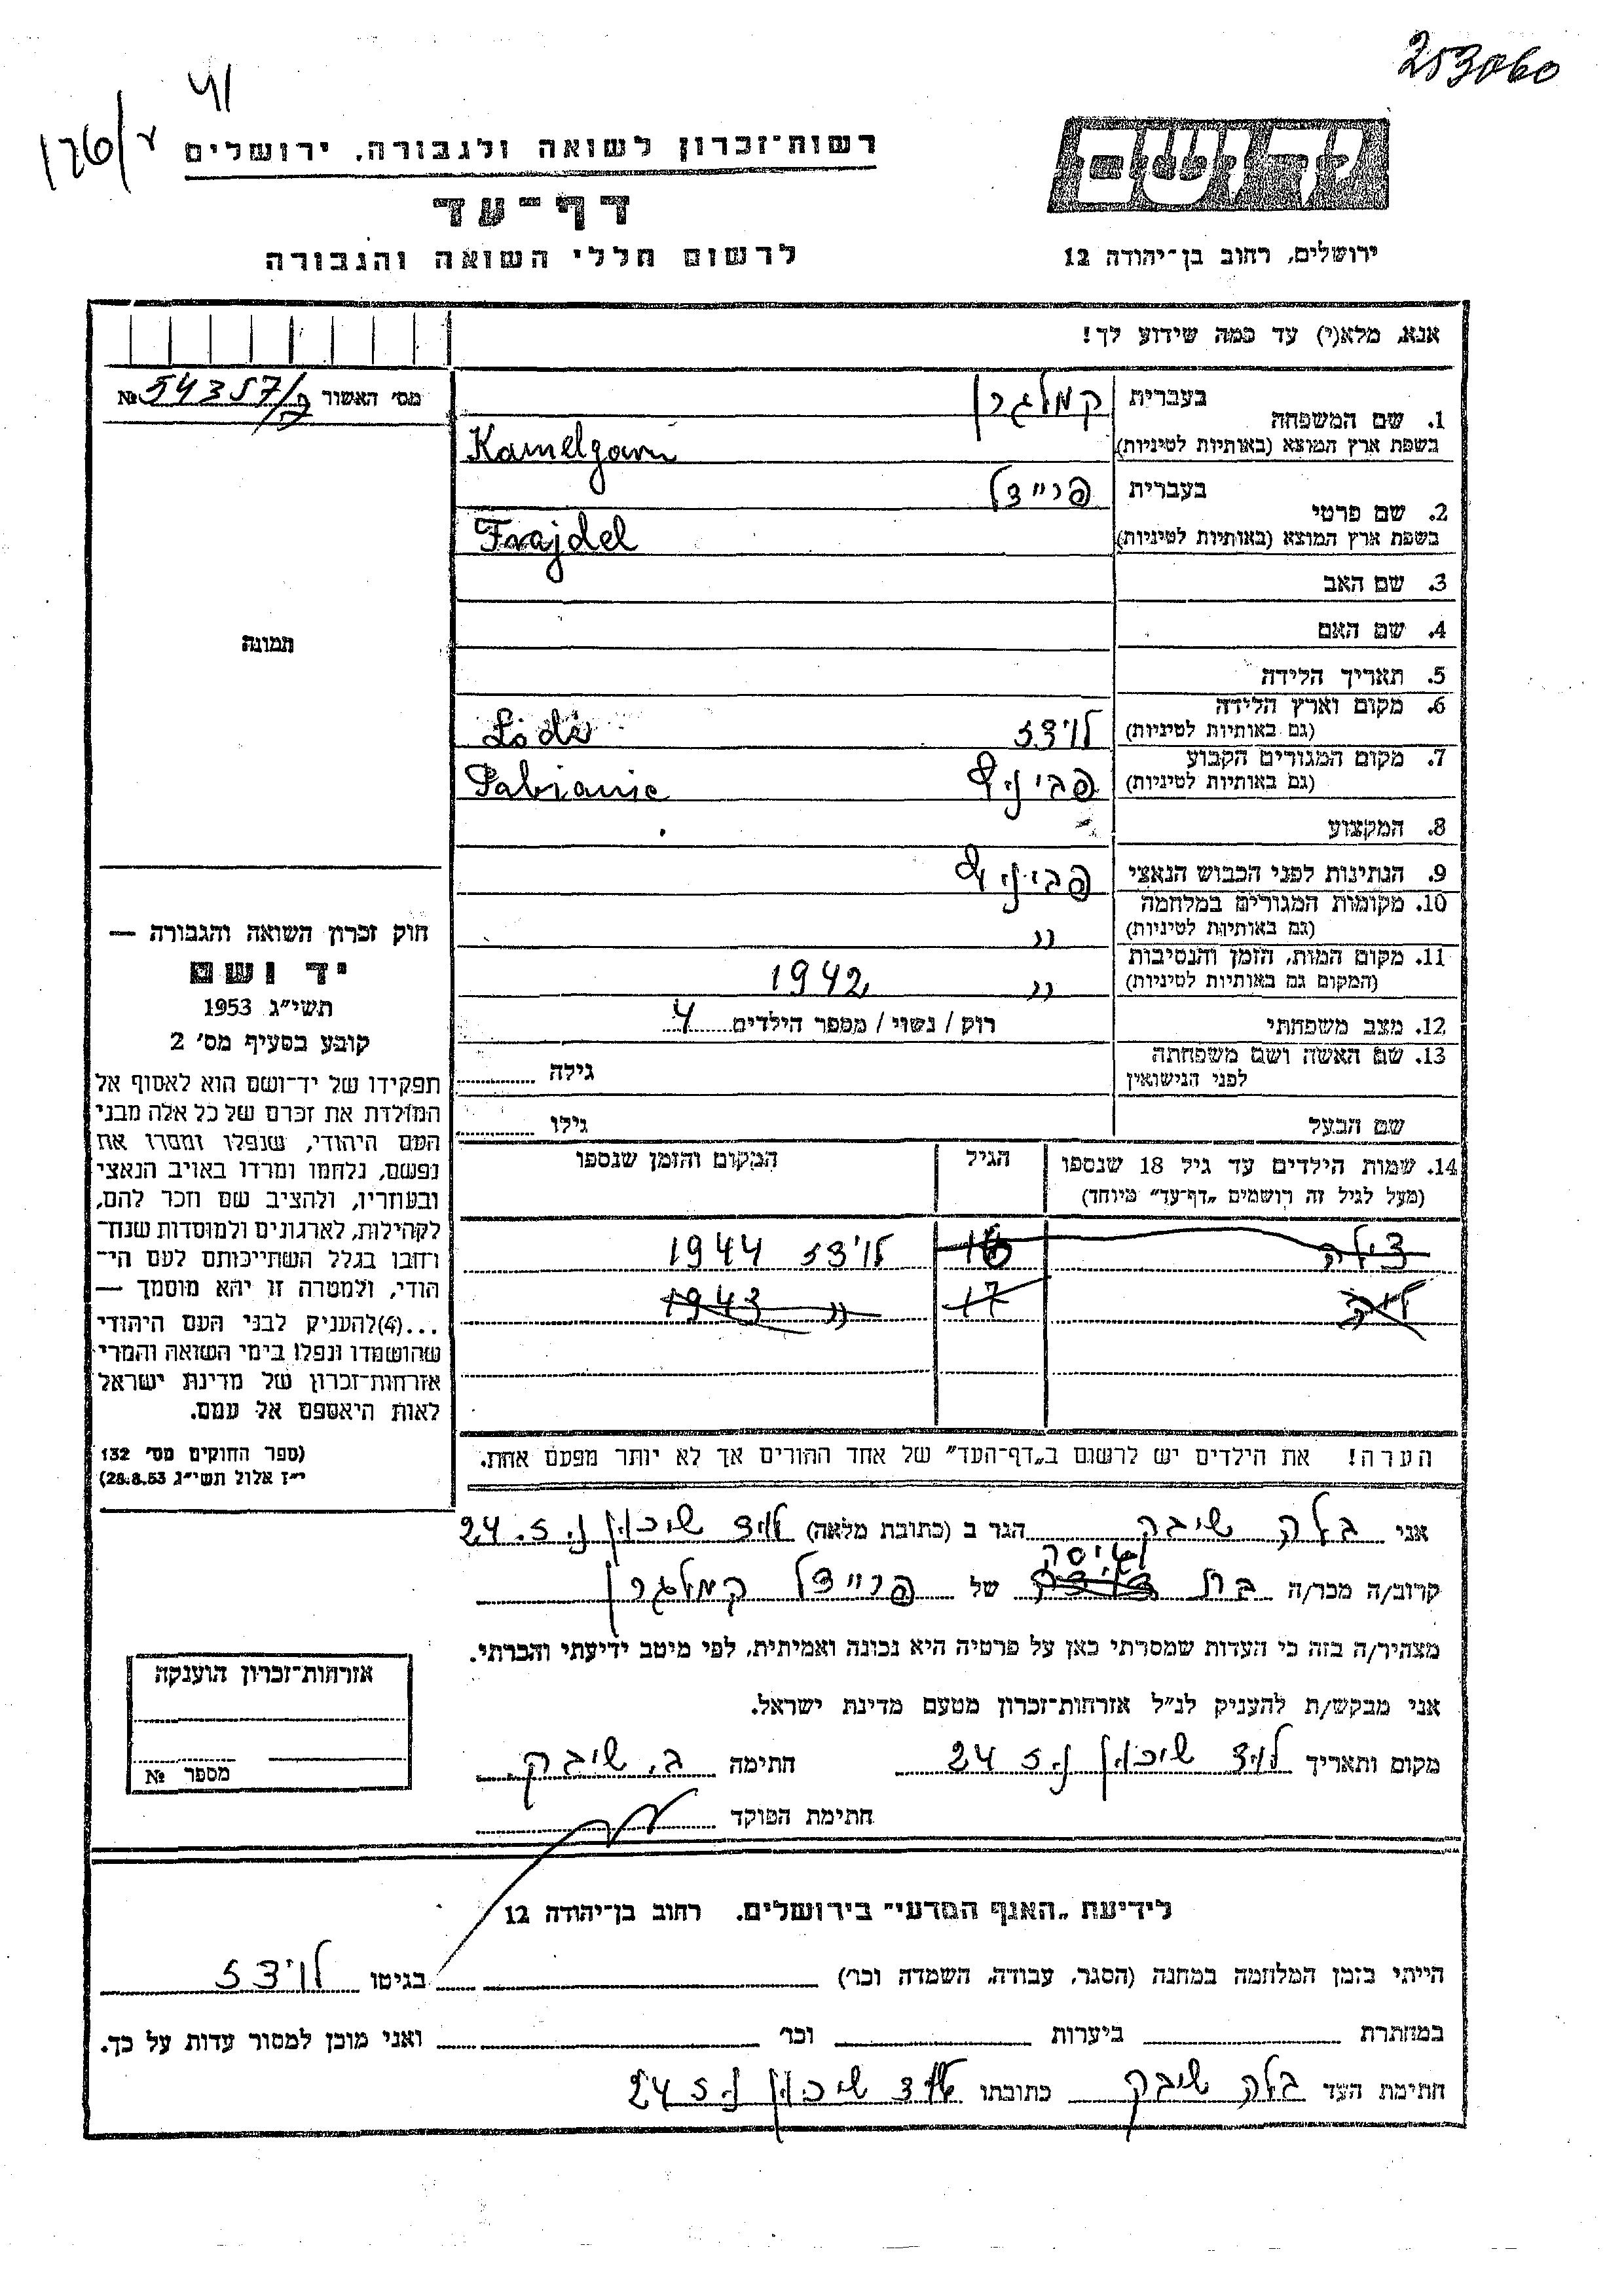 253060
41
רשות־זכרון לשואה ולגבורה, ירושלים
יד ושם
דף־עד
לרשום חללי השואה והגבורה
ירושלים, רחוב בן־יהודה 12
אנא, מלא(י) עד כמה שידוע לך!
מס' האשור № 54357/
1. שם המשפחה
בעברית קמלגרן
בשפת ארץ המוצא (באותיות לטיניות) Kamelgarn
2. שם פרטי
בעברית פריידל
בשפת ארץ המוצא (באותיות לטיניות) Frajdel
3. שם האב
4. שם האם
תמונה
5. תאריך הלידה
6. מקום וארץ הלידה
(גם באותיות לטיניות) לודז Łódź
7. מקום המגורים הקבוע
(גם באותיות לטיניות) Pabianic
8. המקצוע
9. הנתינות לפני הכבוש הנאצי
10. מקומות המגורים במלחמה
(גם באותיות לטיניות) "
11. מקום המות, הזמן והנסיבות
(המקום גם באותיות לטיניות) " 1942
12. מצב משפחתי רוק / נשוי / מספר הילדים 4
13. שם האשה ושם משפחתה
לפני הנישואין גילה
שם הבעל גילו
14. שמות הילדים עד גיל 18 שנספו הגיל המקום והזמן שנספו
(מעל לגיל זה רושמים „דף־עד" מיוחד)
צילה 16 לודז 1944
17 " 1943
הערה! את הילדים יש לרשום ב„דף־העד" של אחד ההורים אך לא יותר מפעם אחת.
חוק זכרון השואה והגבורה —
יד ושם
תשי"ג 1953
קובע בסעיף מס' 2
תפקידו של יד־ושם הוא לאסוף אל
המולדת את זכרם של כל אלה מבני
העם היהודי, שנפלו ומסרו את
נפשם, נלחמו ומרדו באויב הנאצי
ובעוזריו, ולהציב שם וזכר להם,
לקהילות, לארגונים ולמוסדות שנח־
רחבו בגלל השתייכותם לעם הי־
הודי, ולמטרה זו יהא מוסמך —
...(4)להעניק לבני העם היהודי
שהושמדו ונפלו בימי השואה והמרי
אזרחות־זכרון של מדינת ישראל
לאות היאספם אל עמם.
(ספר החוקים מס' 132
י"ז אלול תשי"ג 28.8.53)
אני בלה שיבק הגר ב (כתובת מלאה) לוד שיכון נ.ז. 24
גיסה
קרוב/ה מכר/ה בת של פריידל קמלגרן
מצהיר/ה בזה כי העדות שמסרתי כאן על פרטיה היא נכונה ואמיתית, לפי מיטב ידיעתי והכרתי.
אני מבקש/ת להעניק לנ"ל אזרחות־זכרון מטעם מדינת ישראל.
מקום ותאריך לוד שיכון נ.ז 24 חתימה ב. שיבק
חתימת הפוקד
אזרחות־זכרון הוענקה
מספר №
לידיעת „האגף המדעי" בירושלים. רחוב בן־יהודה 12
הייתי בזמן המלחמה במחנה (הסגר, עבודה, השמדה וכר') בגיטו לודז
במחתרת ביערות וכר' ואני מוכן למסור עדות על כך.
חתימת העד בלה שיבק כתובתו לוד שיכון נ.ז 24